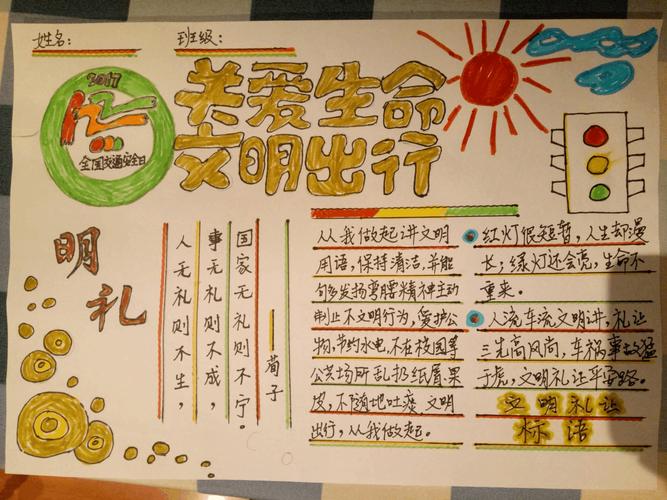 姓名:
班级:
2017
122
全国交通安全日
关爱生命
文明出行
明
礼
人无礼则不生，
事无礼则不成，
国家无礼则不宁。
——荀子
从我做起讲文明
用语，保持清洁，并能
够多发扬弯腰精神主动
制止不文明行为，爱护公
物，节约水电，不在校园等
公共场所乱扔纸屑果
皮，不随地吐痰 文明
出行，从我做起。
红灯很短暂，人生却漫
长；绿灯还会亮，生命不
重来。
人流车流文明讲，礼让
三先高风尚，车祸事故猛
于虎，文明礼让平安路。
文明礼让
标语